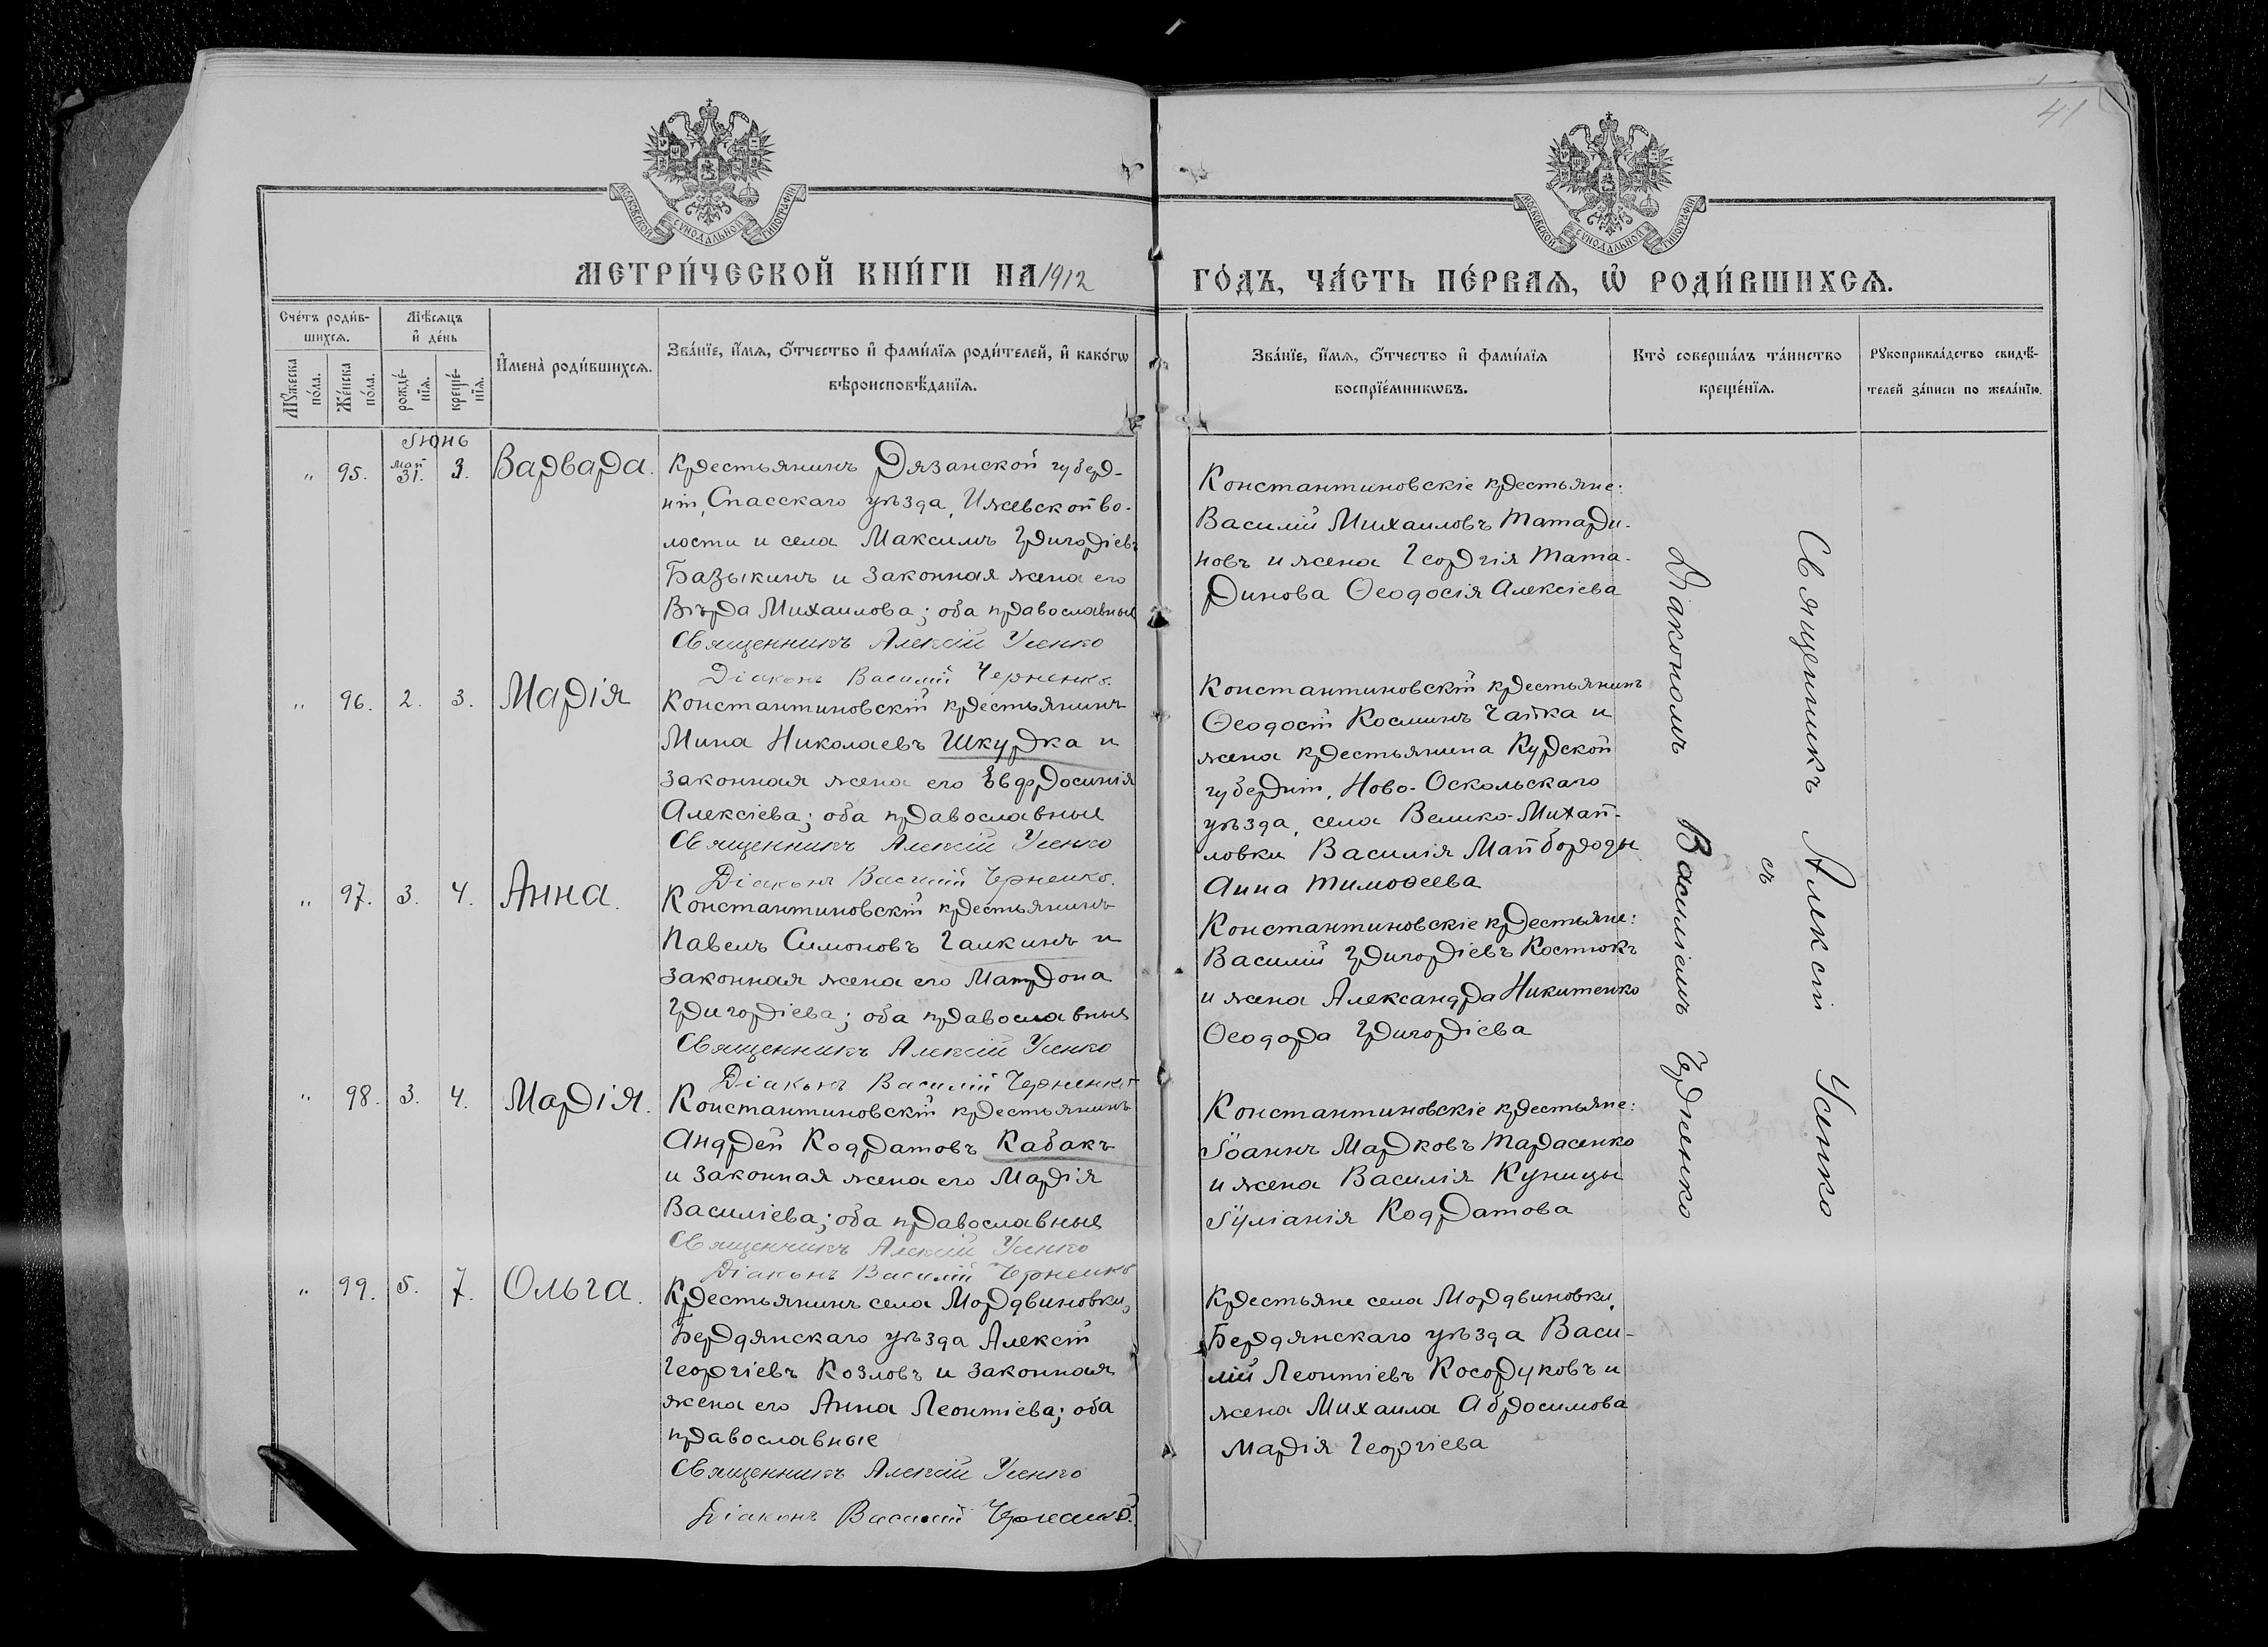 41
МОСКОВСКОЙ СѴНОДАЛЬНОЙ ТИПОГРАФІИ
МОСКОВСКОЙ СѴНОДАЛЬНОЙ ТИПОГРАФІИ
МЕТРИ́ЧЕСКОЙ КНИ́ГИ НА 1912
ГО́ДЪ, ЧА́СТЬ ПЕ́РВАѦ, Ѡ҆ РОДИ́ВШИХСѦ.
Сче́тъ роди́в-
шихсѧ.
Мѣ́сѧцъ
и҆ де́нь
Мꙋ́жеска
по́ла.
Же́нска
по́ла.
рожде́-
нїѧ.
креще́-
нїѧ.
И҆мена̀ роди́вшихсѧ.
Зва́нїе, и҆́мѧ, ѻ҆́тчество и҆ фами́лїѧ роди́телей, и҆ како́гѡ
вѣроисповѣ́данїѧ.
Зва́нїе, и҆́мѧ, ѻ҆́тчество и҆ фами́лїѧ
воспрїе́мникѡвъ.
Кто̀ соверша́лъ та́инство
креще́нїѧ.
Рꙋкоприкла́дство свидѣ́-
телей за́писи по жела́нїю.
Іюнь
" 95. Май 31. 3. Варвара.
Крестьянинъ Рязанской губер-
ніи, Спасскаго уѣзда, Ижевской во-
лости и села Максимъ Григоріевъ
Базыкинъ и законная жена его
Вѣра Михаилова; оба православные
Священникъ Алексій Усенко
Діаконъ Василій Черненко.
Константиновскіе крестьяне:
Василій Михаиловъ Татари-
новъ и жена Георгія Тата-
ринова Ѳеодосія Алексіева
" 96. 2. 3. Марія
Константиновскій крестьянинъ
Мина Николаевъ Шкурка и
законная жена его Евфросинія
Алексіева; оба православные
Священникъ Алексій Усенко
Діаконъ Василій Черненко.
Константиновскій крестьянинъ
Ѳеодосій Косминъ Чайка и
жена крестьянина Курской
губерніи, Ново-Оскольскаго
уѣзда, села Велико-Михай-
ловки Василія Майбороды
Анна Тимоѳеева
" 97. 3. 4. Анна.
Константиновскій крестьянинъ
Павелъ Симоновъ Галкинъ и
законная жена его Матрона
Григоріева; оба православные
Священникъ Алексій Усенко
Діаконъ Василій Черненко
Константиновскіе крестьяне:
Василій Григоріевъ Костюкъ
и жена Александра Никитенко
Ѳеодора Григоріева
" 98. 3. 4. Марія.
Константиновскій крестьянинъ
Андрей Кодратовъ Кабакъ
и законная жена его Марія
Василіева; оба православные
Священникъ Алексій Усенко
Діаконъ Василій Черненко
Константиновскіе крестьяне:
Іоаннъ Марковъ Тарасенко
и жена Василія Куницы
Іуліанія Кодратова
" 99. 5. 7. Ольга.
Крестьянинъ села Мордвиновки,
Бердянскаго уѣзда Алексій
Георгіевъ Козловъ и законная
жена его Анна Леонтіева; оба
православные
Священникъ Алексій Усенко
Діаконъ Василій Черненко.
Крестьяне села Мордвиновки,
Бердянскаго уѣзда Васи-
лій Леонтіевъ Косоруковъ и
жена Михаила Абросимова
Марія Георгіева
Священникъ Алексій Усенко
съ
Діакономъ Василіемъ Черненко